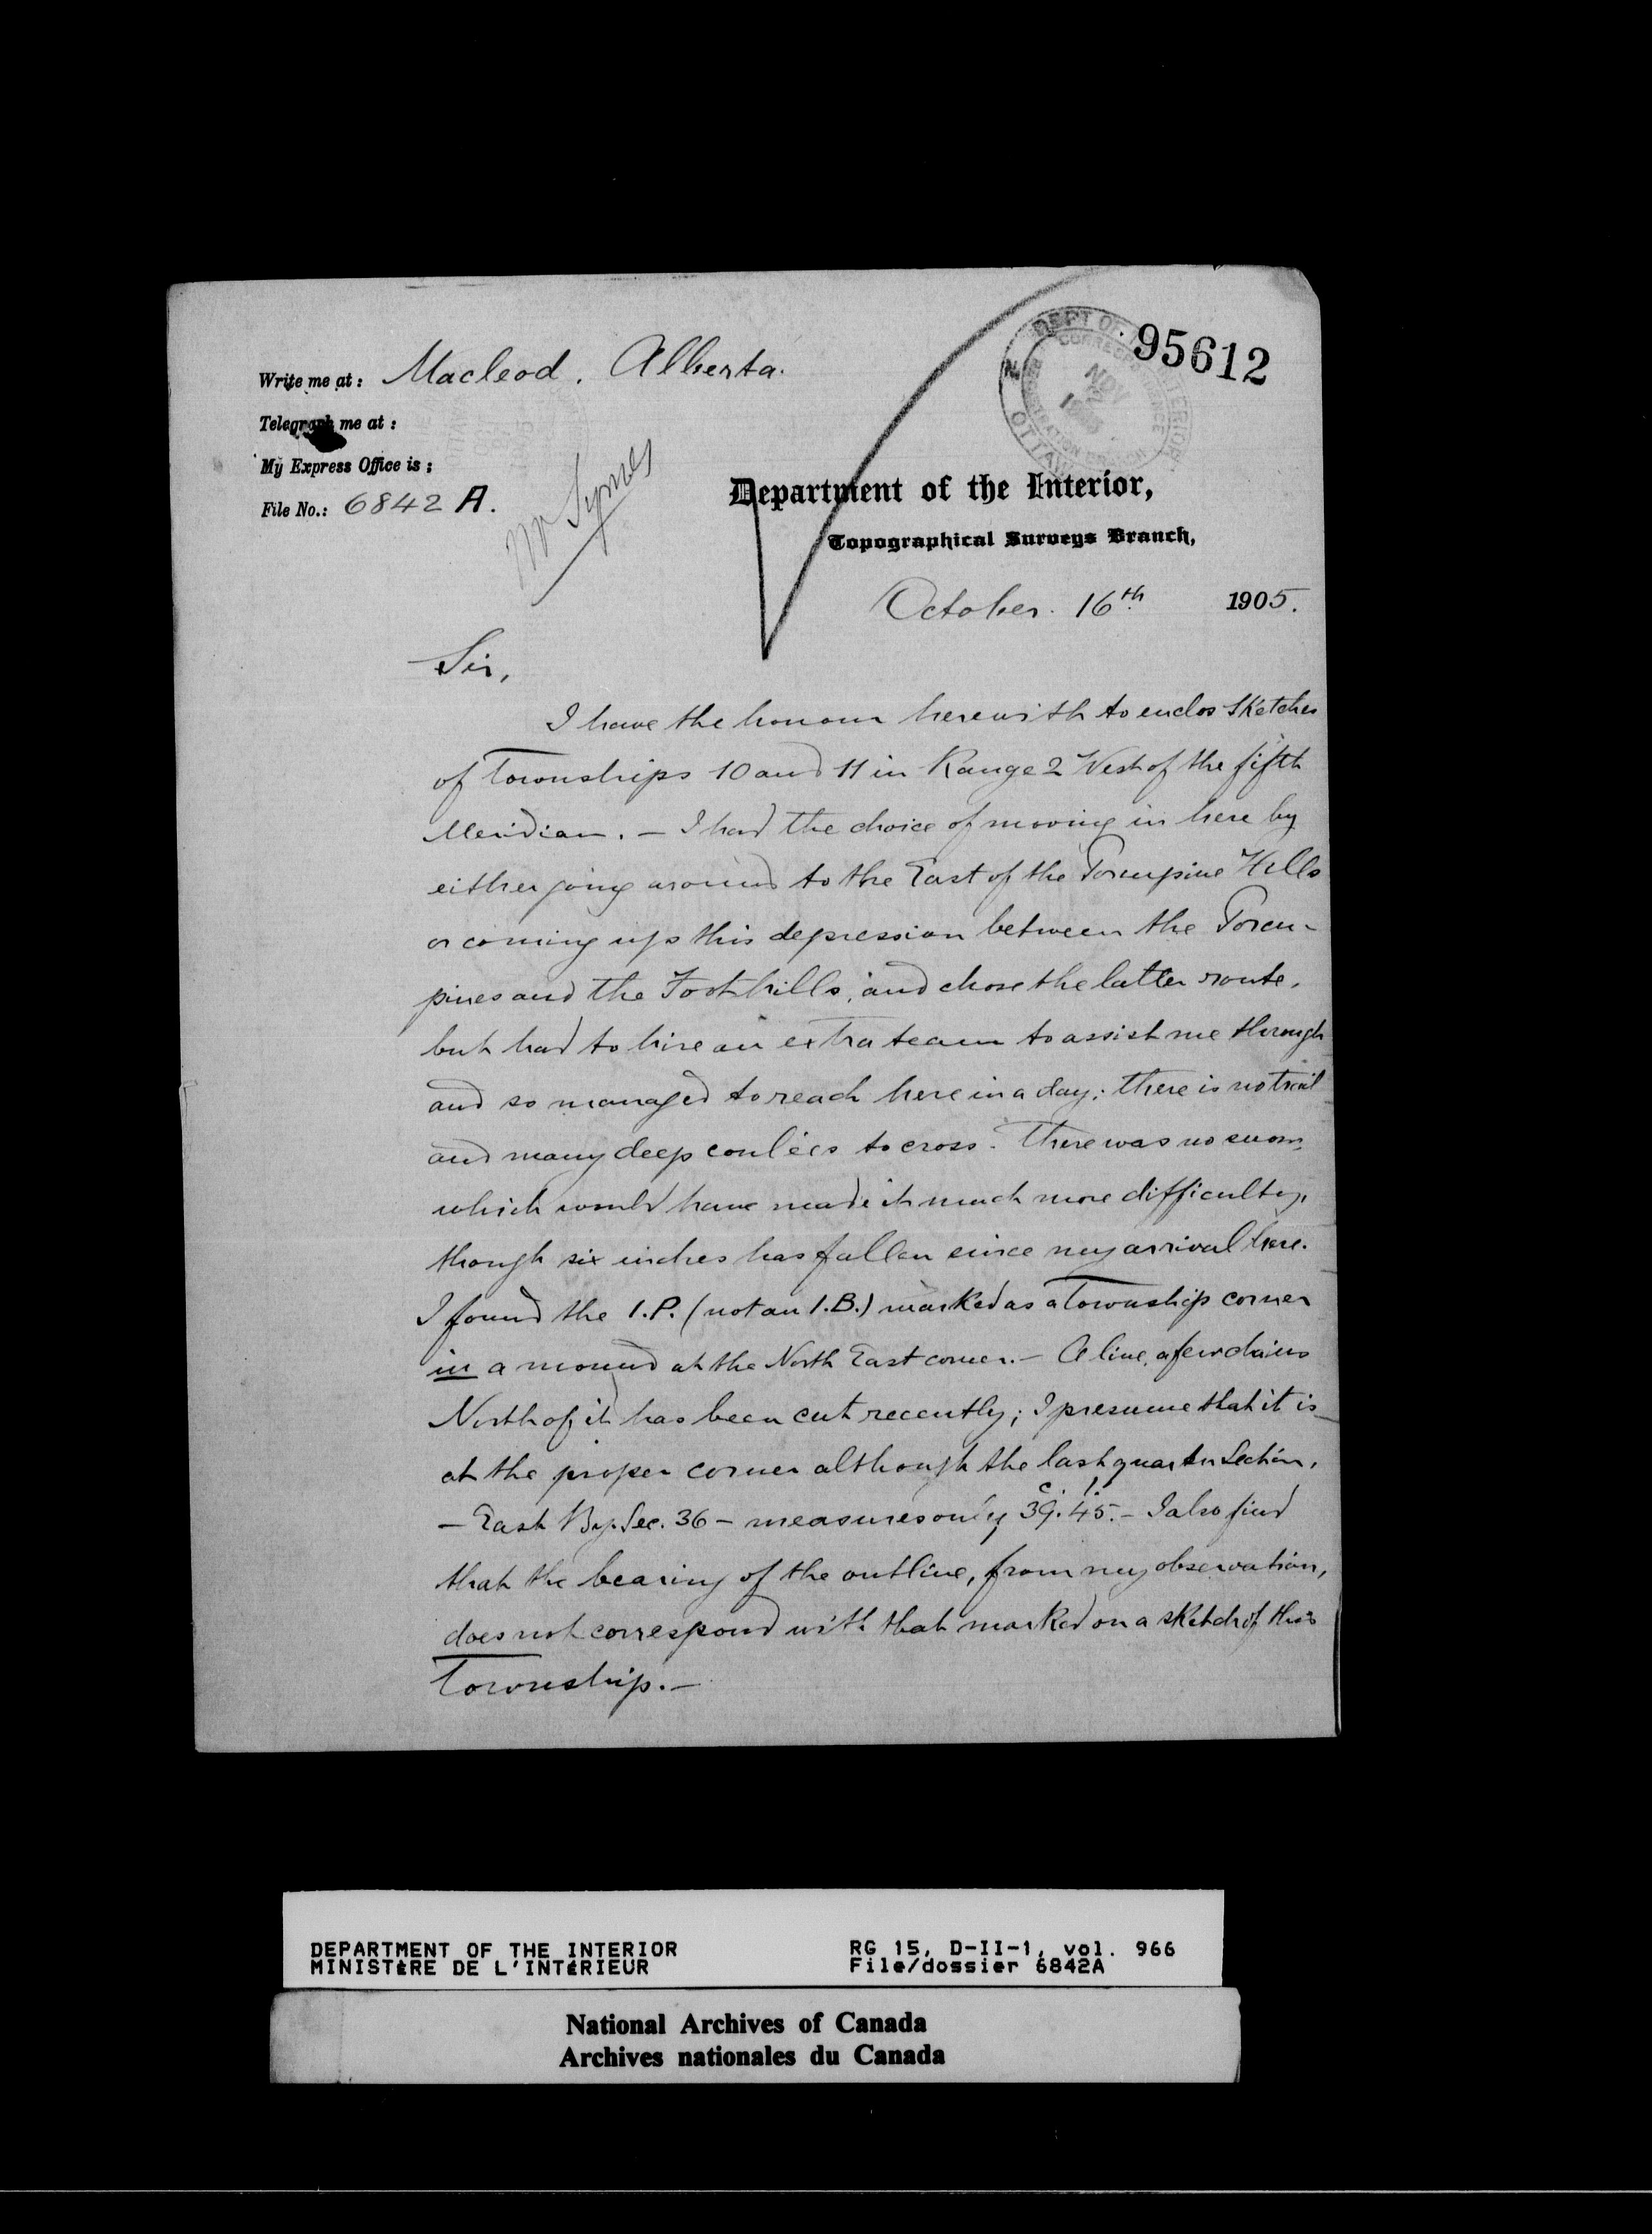 95612
DEPT OF INTERIOR
CORRESPONDENCE
NOV 2 1905
REGISTRATION BRANCH
OTTAWA
Write me at: Macleod. Alberta.
Telegraph me at:
My Express Office is:
File No.: 6842 A.
Mr Symes
Department of the Interior,
Topographical Surveys Branch,
October. 16th 1905.
Sir,
I have the honour herewith to enclos sketches
of Townships 10 and 11 in Range 2 West of the fifth
Meridian. — I had the choice of moving in here by
either going around to the East of the Porcupine Hills
or coming up this depression between the Porcu-
pines and the Foothills, and chose the latter route,
but had to hire an extra team to assist me through
and so managed to reach here in a day; there is no trail
and many deep coulées to cross. There was no snow,
which would have made it much more difficulty,
though six inches has fallen since my arrival here.
I found the I.P. (not an I.B.) marked as a Township corner
in a mound at the North East corner. — A line, a few chains
North of it has been cut recently; I presume that it is
at the proper corner although the last quarter Section,
— East By. Sec. 36 — measures only 39.45. — I also find
c. l.
that the bearing of the outline, from my observation,
does not correspond with that marked on a sketch of this
Township. —
DEPARTMENT OF THE INTERIOR
MINISTÈRE DE L'INTÉRIEUR
RG 15, D-II-1, vol. 966
File/dossier 6842A
National Archives of Canada
Archives nationales du Canada